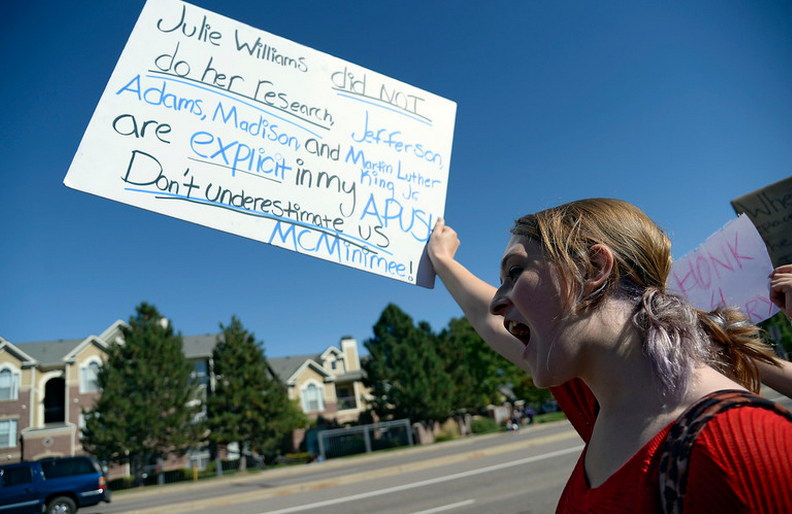 Julie Williams did NOT
do her research, Jefferson,
Adams, Madison, and Martin Luther King Jr.
are explicit in my APUSH
Don't underestimate us
McMinimee!
HONK
4